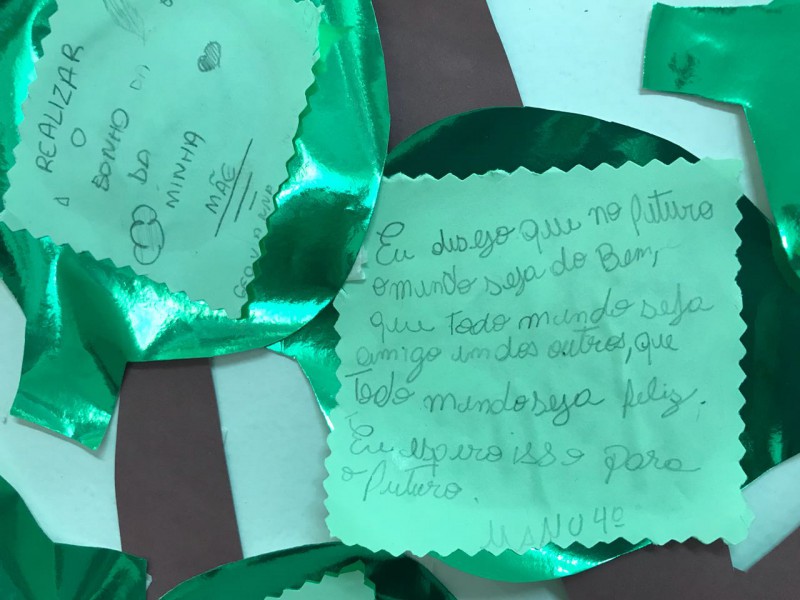 REALIZAR
O
SONHO
DA
MINHA
MÃE
Eu desejo que no futuro
o mundo seja do Bem,
que todo mundo seja
amigo un dos outros, que
todo mundo seja feliz.
Eu espero isso para
o futuro.
MANU 4º